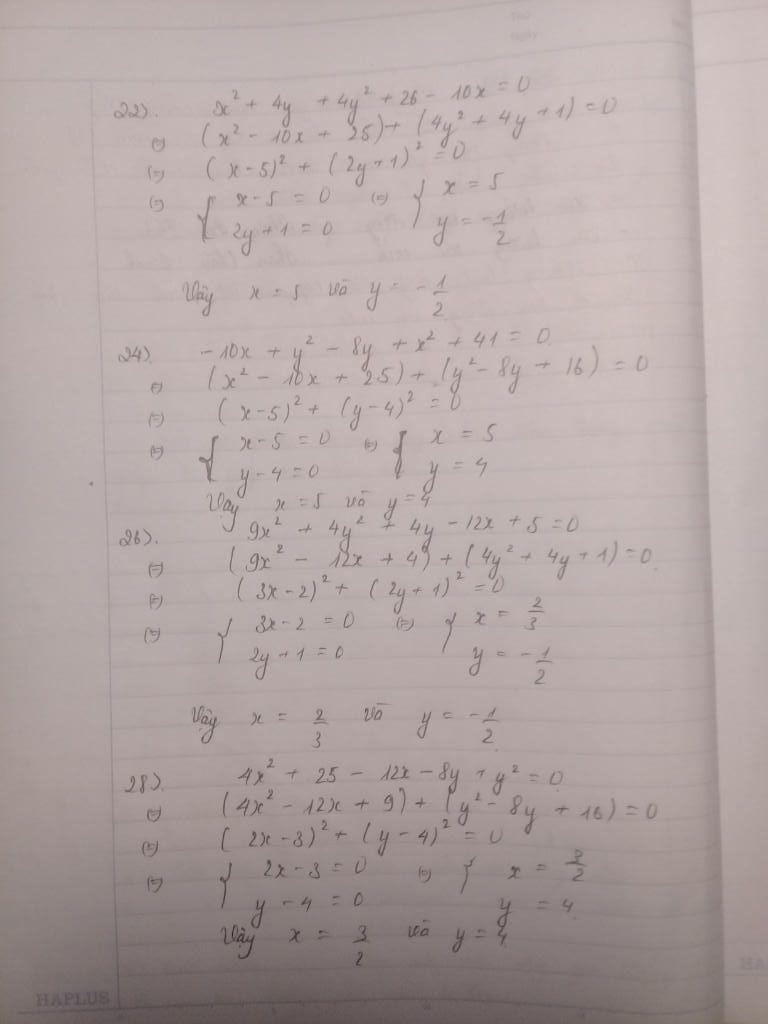 22). x² + 4y + 4y² + 26 - 10x = 0
(=) (x² - 10x + 25) + (4y² + 4y + 1) = 0
(=) (x - 5)² + (2y + 1)² = 0
(=) { x - 5 = 0 (=) { x = 5
2y + 1 = 0 y = -1/2
Vậy x = 5 và y = -1/2
24). - 10x + y² - 8y + x² + 41 = 0
(=) (x² - 10x + 25) + (y² - 8y + 16) = 0
(=) (x - 5)² + (y - 4)² = 0
(=) { x - 5 = 0 (=) { x = 5
y - 4 = 0 y = 4
Vậy x = 5 và y = 4
26). 9x² + 4y² + 4y - 12x + 5 = 0
(=) (9x² - 12x + 4) + (4y² + 4y + 1) = 0
(=) (3x - 2)² + (2y + 1)² = 0
(=) { 3x - 2 = 0 (=) { x = 2/3
2y + 1 = 0 y = -1/2
Vậy x = 2/3 và y = -1/2
28). 4x² + 25 - 12x - 8y + y² = 0
(=) (4x² - 12x + 9) + (y² - 8y + 16) = 0
(=) (2x - 3)² + (y - 4)² = 0
(=) { 2x - 3 = 0 (=) { x = 3/2
y - 4 = 0 y = 4
Vậy x = 3/2 và y = 4
HAPLUS
HA